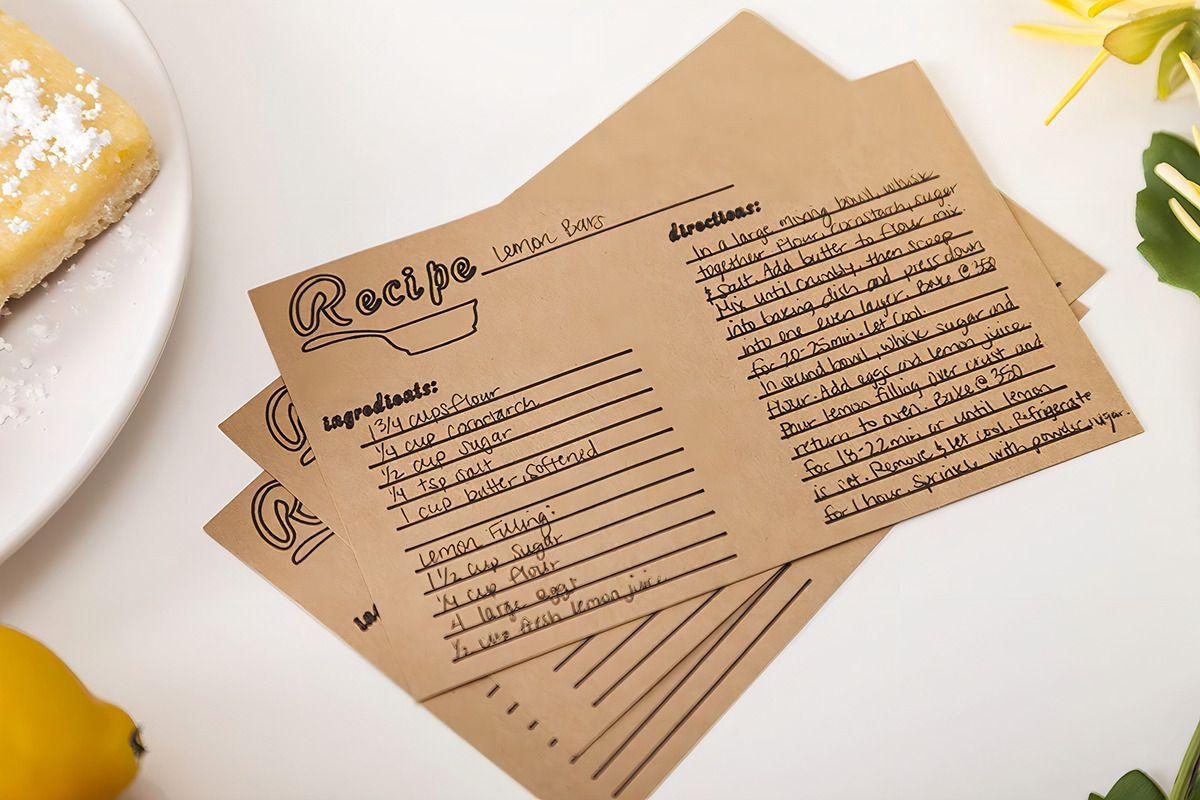 Recipe Lemon Bars
ingredients:
1 3/4 cups flour
1/4 cup cornstarch
1/2 cup sugar
1/4 tsp salt
1 cup butter, softened
Lemon Filling:
1 1/2 cup sugar
1/4 cup flour
4 large eggs
1/2 cup fresh lemon juice
directions:
In a large mixing bowl, whisk
together flour, cornstarch, sugar
& salt. Add butter to flour mix.
Mix until crumbly, then scoop
into baking dish and press down
into one even layer. Bake @ 350
for 20-25min. let cool.
In second bowl, whisk sugar and
flour. Add eggs and lemon juice.
Pour lemon filling over crust and
return to oven. Bake @ 350
for 18-22min or until lemon
is set. Remove & let cool. Refrigerate
for 1 hour. Sprinkle with powder sugar.
R
R